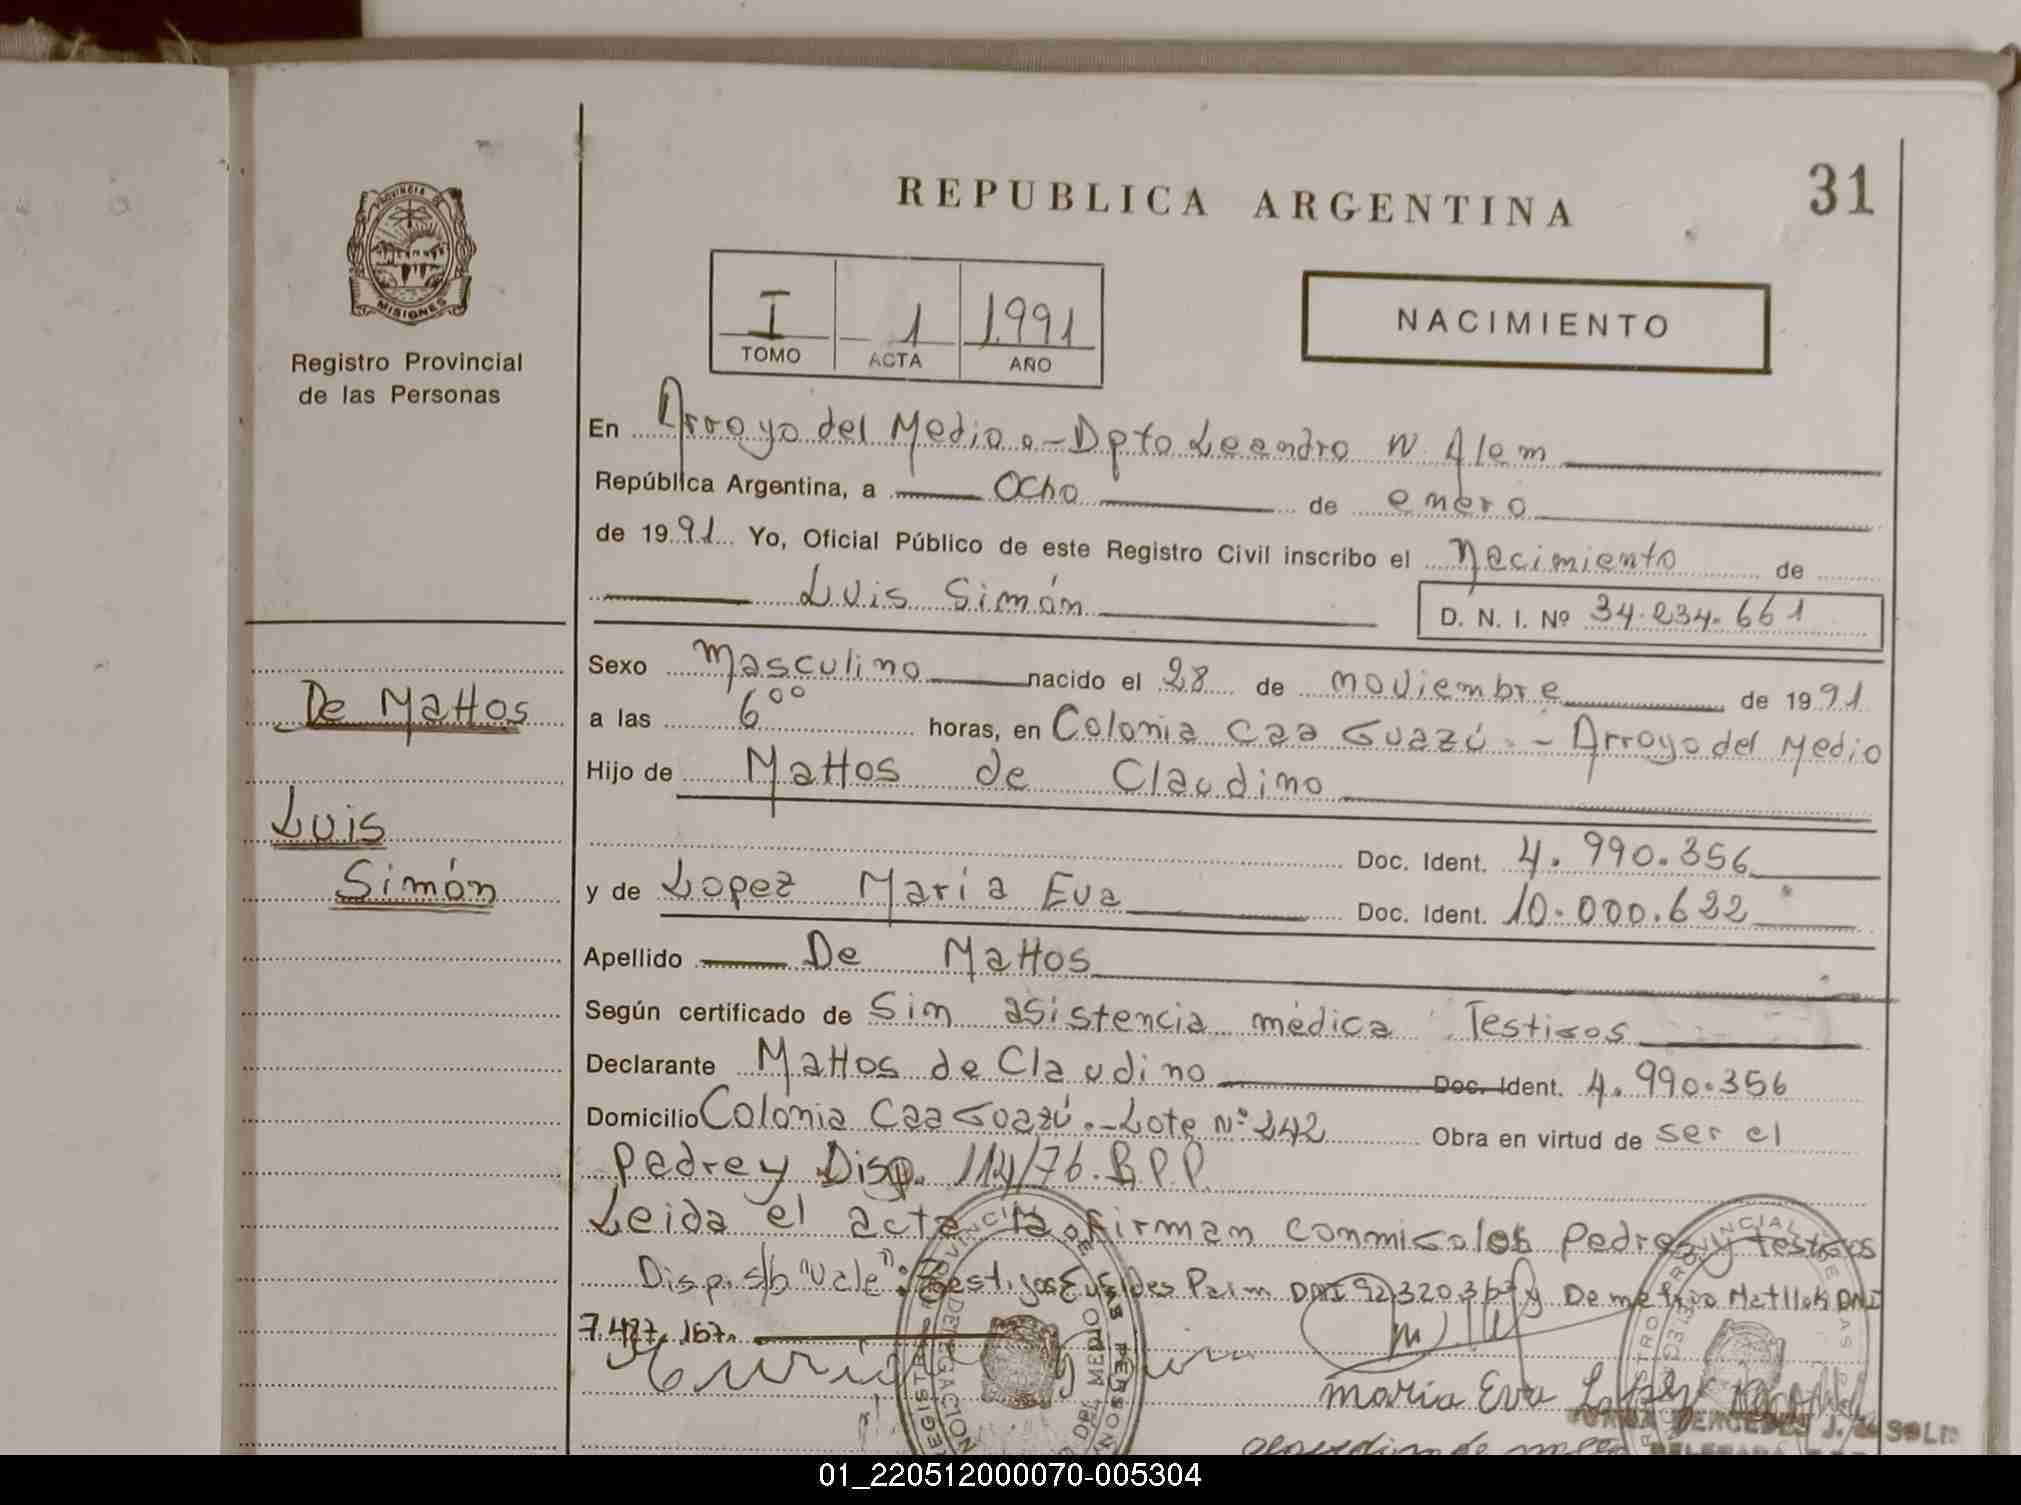 REPUBLICA ARGENTINA
31
PROVINCIA DE
MISIONES
Registro Provincial
de las Personas
I 1 1.991
TOMO ACTA AÑO
NACIMIENTO
En Arroyo del Medio.-Dpto Leandro N. Alem
República Argentina, a Ocho de enero
de 1991 Yo, Oficial Público de este Registro Civil inscribo el Nacimiento de
Luis Simón
D. N. I. Nº 34.234.661
Sexo Masculino nacido el 28 de noviembre de 1991
a las 6⁰⁰ horas, en Colonia Caa Guazú.-Arroyo del Medio
Hijo de Mattos de Claudino
Doc. Ident. 4.990.356
y de Lopez Maria Eva Doc. Ident. 10.000.622
Apellido De Mattos
Según certificado de Sin asistencia médica Testigos
Declarante Mattos de Claudino Doc. Ident. 4.990.356
Domicilio Colonia Caa Guazú.-Lote Nº 242 Obra en virtud de ser el
padre y Disp. 114/76.R.P.P.
Leida el acta la firman conmigo los padres y testigos
Disp. s/b "Vale": testigos Euclides Palm DNI 92320367 y Demetrio DNI
7.427.167.
De Mattos
Luis
Simón
Maria Eva Lopez
01_220512000070-005304